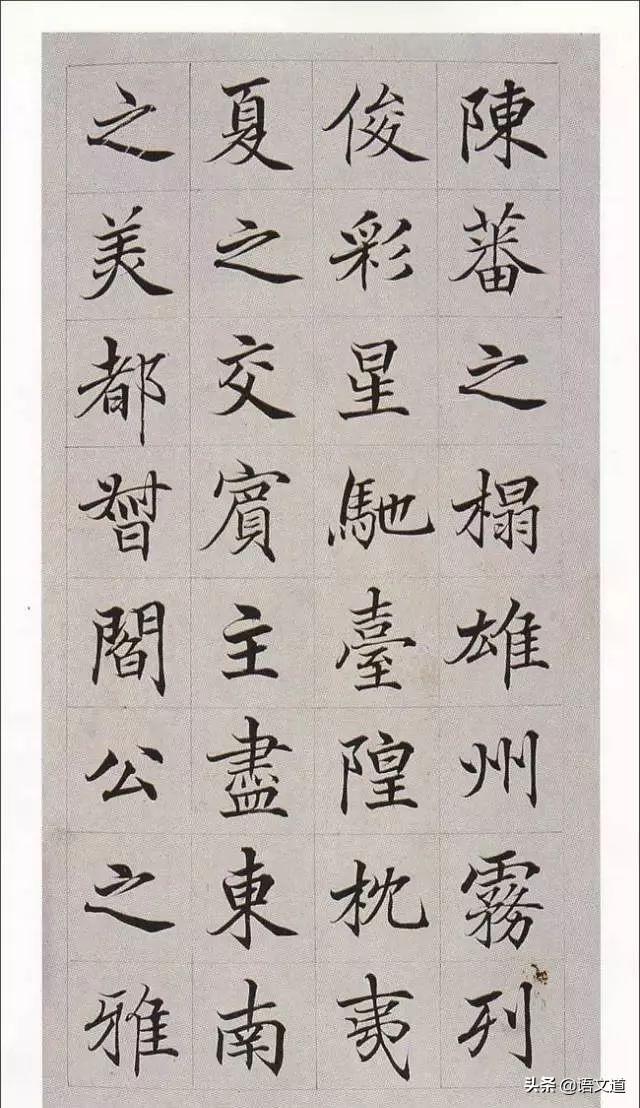 陳蕃之榻雄州霧列
俊彩星馳臺隍枕夷
夏之交賓主盡東南
之美都督閻公之雅
头条 @语文道